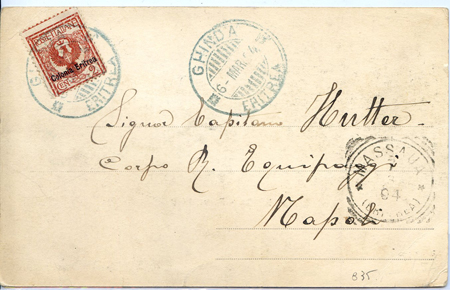 POSTE ITALIANE
Colonia Eritrea
2
GHINDA
6-MAR 04
ERITREA
GHINDA
ERITREA
Signor Capitano Hutter
Corpo R. Equipaggi
Napoli
MASSAUA
04
(ERITREA)
835